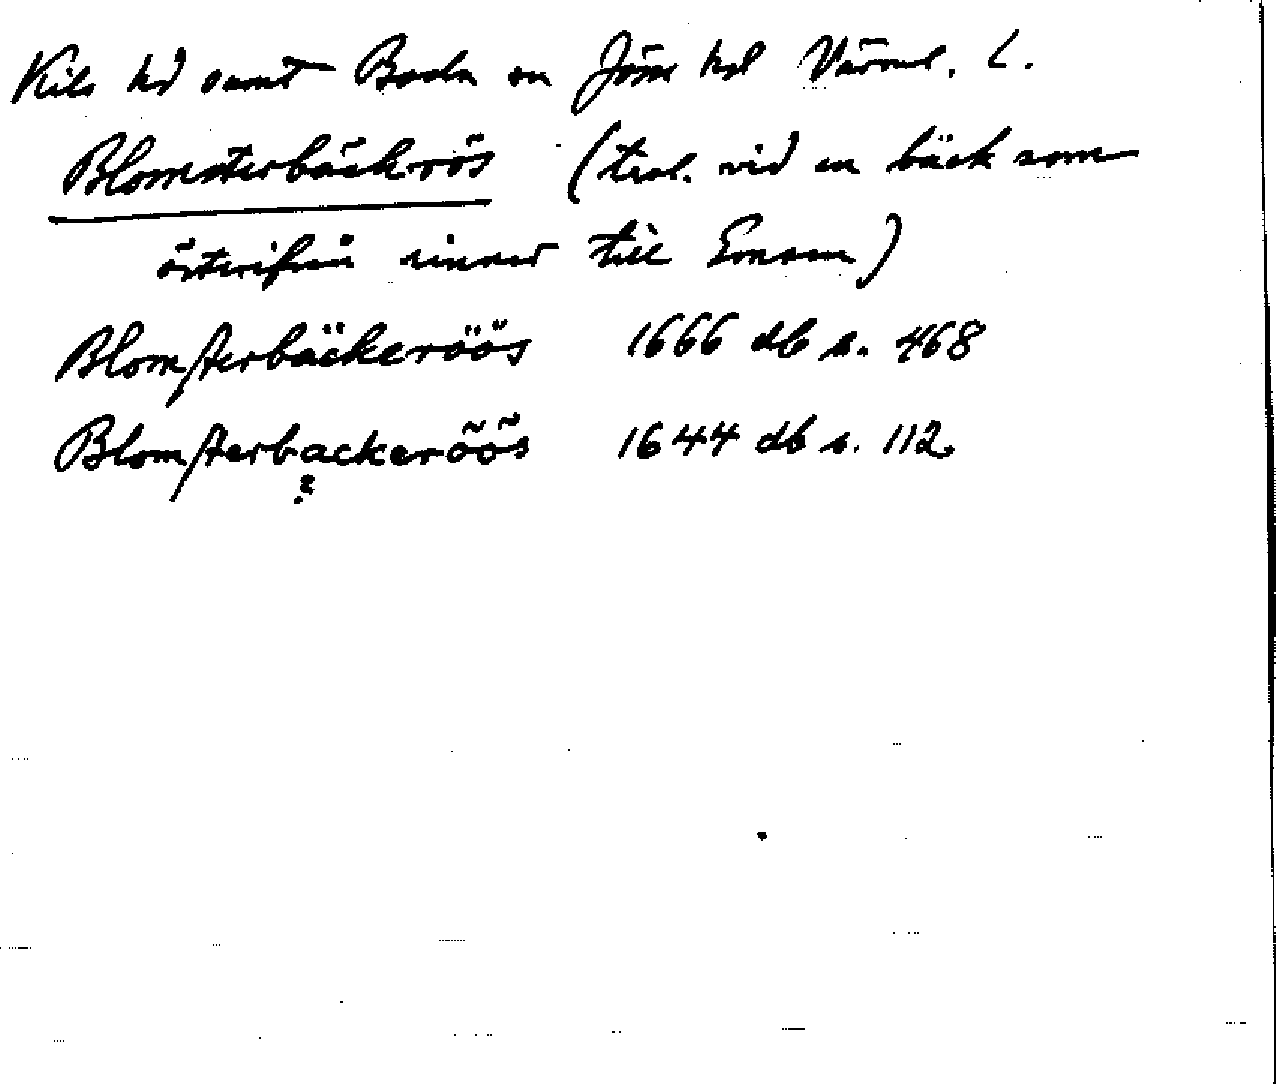 Kils hd samt Boda sn Jöss hd Värml. L.
Blomsterbäckrös (trol. vid en bäck som
österifrån rinner till Emsen)
Blomsterbäckeröös 1666 db s. 468
Blomsterbackeröös 1644 db s. 112.
?